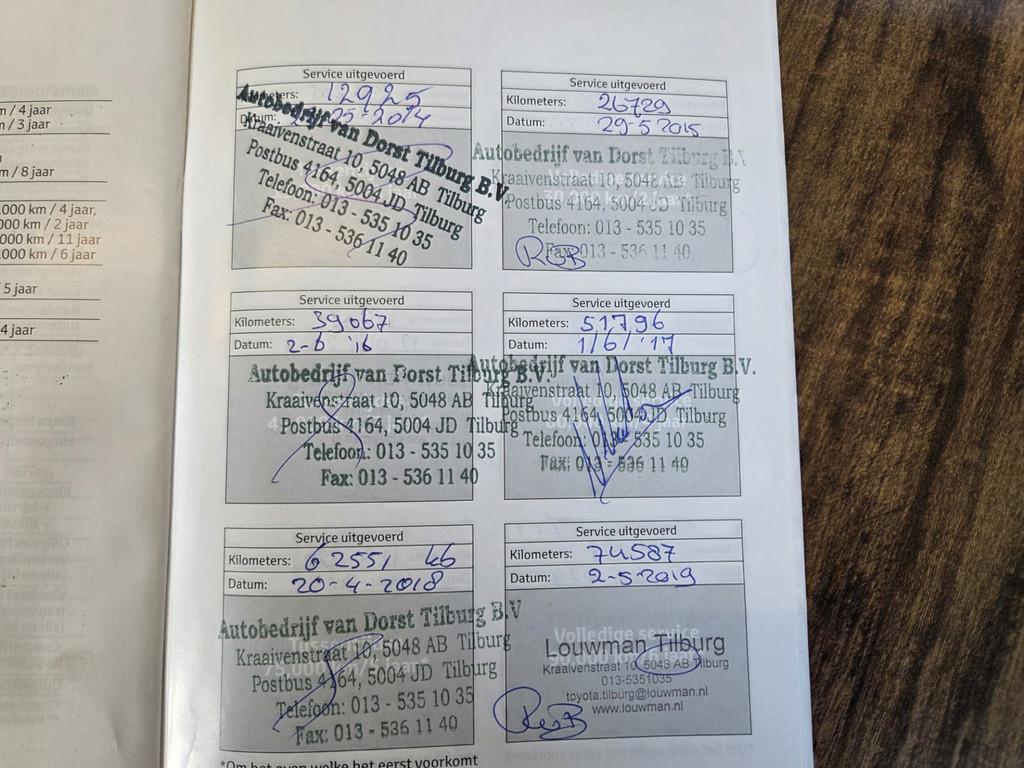 m / 4 jaar
m / 3 jaar
m / 8 jaar
000 km / 4 jaar,
000 km / 2 jaar
000 km / 11 jaar
.000 km / 6 jaar
5 jaar
4 jaar
Service uitgevoerd
Kilometers: 12925
Datum: 25-2014
Autobedrijf van Dorst Tilburg B.V
Kraaivenstraat 10, 5048 AB Tilburg
Postbus 4164, 5004 JD Tilburg
Telefoon: 013 - 535 10 35
Fax: 013 - 536 11 40
Service uitgevoerd
Kilometers: 26729
Datum: 29-5 2015
Autobedrijf van Dorst Tilburg B.V.
Kraaivenstraat 10, 5048 AB Tilburg
Postbus 4164, 5004 JD Tilburg
Telefoon: 013 - 535 10 35
Fax: 013 - 536 11 40
RoB
Service uitgevoerd
Kilometers: 39067
Datum: 2-6 '16
Autobedrijf van Dorst Tilburg B.V.
Kraaivenstraat 10, 5048 AB Tilburg
Postbus 4164, 5004 JD Tilburg
Telefoon: 013 - 535 10 35
Fax: 013 - 536 11 40
Service uitgevoerd
Kilometers: 51796
Datum: 1/6/'17
Autobedrijf van Dorst Tilburg B.V.
Kraaivenstraat 10, 5048 AB Tilburg
Postbus 4164, 5004 JD Tilburg
Telefoon: 013 - 535 10 35
Fax: 013 - 536 11 40
Service uitgevoerd
Kilometers: 62551 k6
Datum: 20-4-2018
Autobedrijf van Dorst Tilburg B.V
Kraaivenstraat 10, 5048 AB Tilburg
Postbus 4164, 5004 JD Tilburg
Telefoon: 013 - 535 10 35
Fax: 013 - 536 11 40
Service uitgevoerd
Kilometers: 74587
Datum: 2-5-2019
Volledige service
Louwman Tilburg
Kraaivenstraat 10, 5048 AB Tilburg
013-5351035
toyota.tilburg@louwman.nl
www.louwman.nl
RoB
*Om het even welke het eerst voorkomt